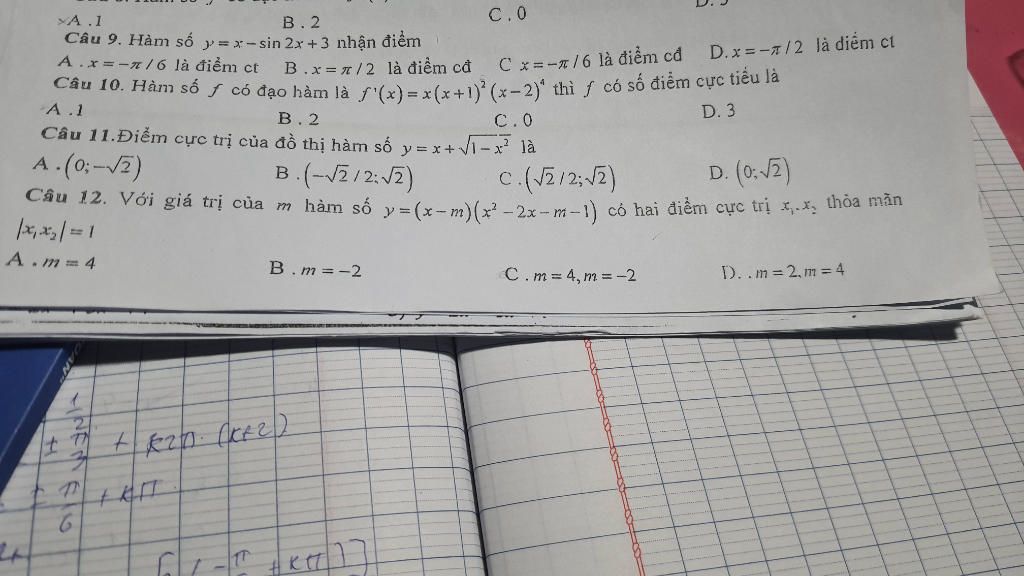 A.1 B.2 C.0
Câu 9. Hàm số y = x − sin 2x + 3 nhận điểm
A. x = −π / 6 là điểm ct B. x = π / 2 là điểm cđ C x = −π / 6 là điểm cđ D. x = −π / 2 là điểm ct
Câu 10. Hàm số f có đạo hàm là f'(x) = x(x+1)²(x−2)⁴ thì f có số điểm cực tiểu là
A.1 B.2 C.0 D. 3
Câu 11.Điểm cực trị của đồ thị hàm số y = x + √(1 − x²) là
A.(0;−√2) B.(−√2 / 2;√2) C.(√2 / 2;√2) D. (0;√2)
Câu 12. Với giá trị của m hàm số y = (x − m)(x² − 2x − m − 1) có hai điểm cực trị x₁.x₂ thỏa mãn
|x₁x₂| = 1
A. m = 4 B. m = −2 C. m = 4, m = −2 D. . m = 2, m = 4
1/2
± π/3 + k2π. (k∈Z)
π/6 + kπ
−π + kπ